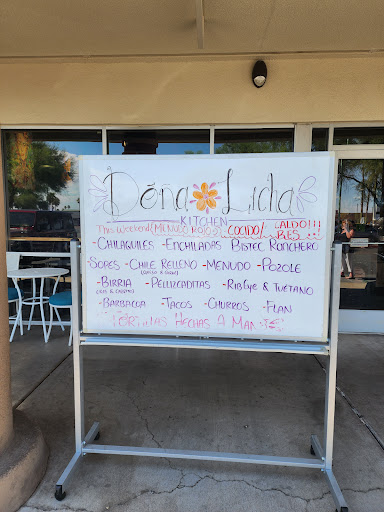 Doña Lida
KITCHEN
This Weekend (MENUDO ROJO) COCIDO!
-CHILAQUILES -ENCHILADAS BISTEC RANCHERO
-SOPES -CHILE RELLENO -MENUDO -POZOLE
-BIRRIA -PELLIZCADITAS -RIBEYE & TUETANO
-BARBACOA -TACOS -CHURROS -FLAN
HECHAS A MANO